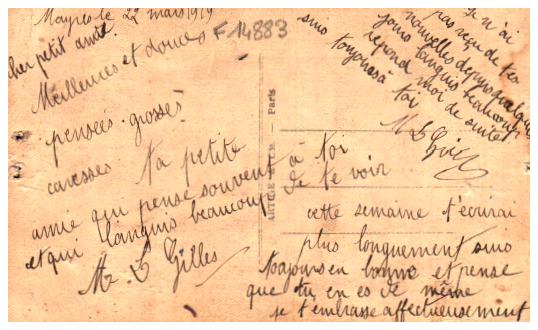 Mayres le 22 mars 1919
F 14883
Cher petit ami.
Meilleures et douces
pensées. grosses
caresses ta petite
amie qui pense souvent à toi
et qui languis beaucoup de te voir
M L Gilles
ARTIGE Paris
cette semaine t'ecrirai
plus longuement suis
toujours en bonne et pense
que tu en es de même
je t'embrasse affectueusement
Je n'ai
pas reçu de tes
nouvelles depuis quelques
jours languis beaucoup
repond moi de suite
suis toujours à toi
M L